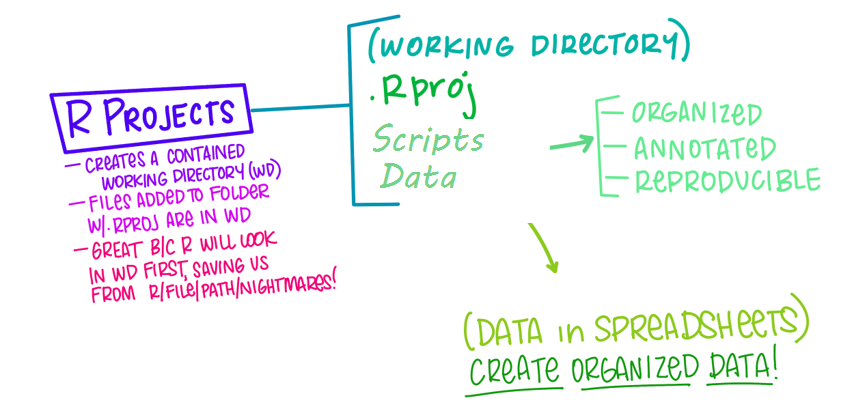 R PROJECTS
— CREATES A CONTAINED
WORKING DIRECTORY (WD)
— FILES ADDED TO FOLDER
W/.RPROJ ARE IN WD
— GREAT B/C R WILL LOOK
IN WD FIRST, SAVING US
FROM R/FILE/PATH/NIGHTMARES!
(WORKING DIRECTORY)
.Rproj
Scripts
Data
— ORGANIZED
— ANNOTATED
— REPRODUCIBLE
(DATA in SPREADSHEETS)
CREATE ORGANIZED DATA!